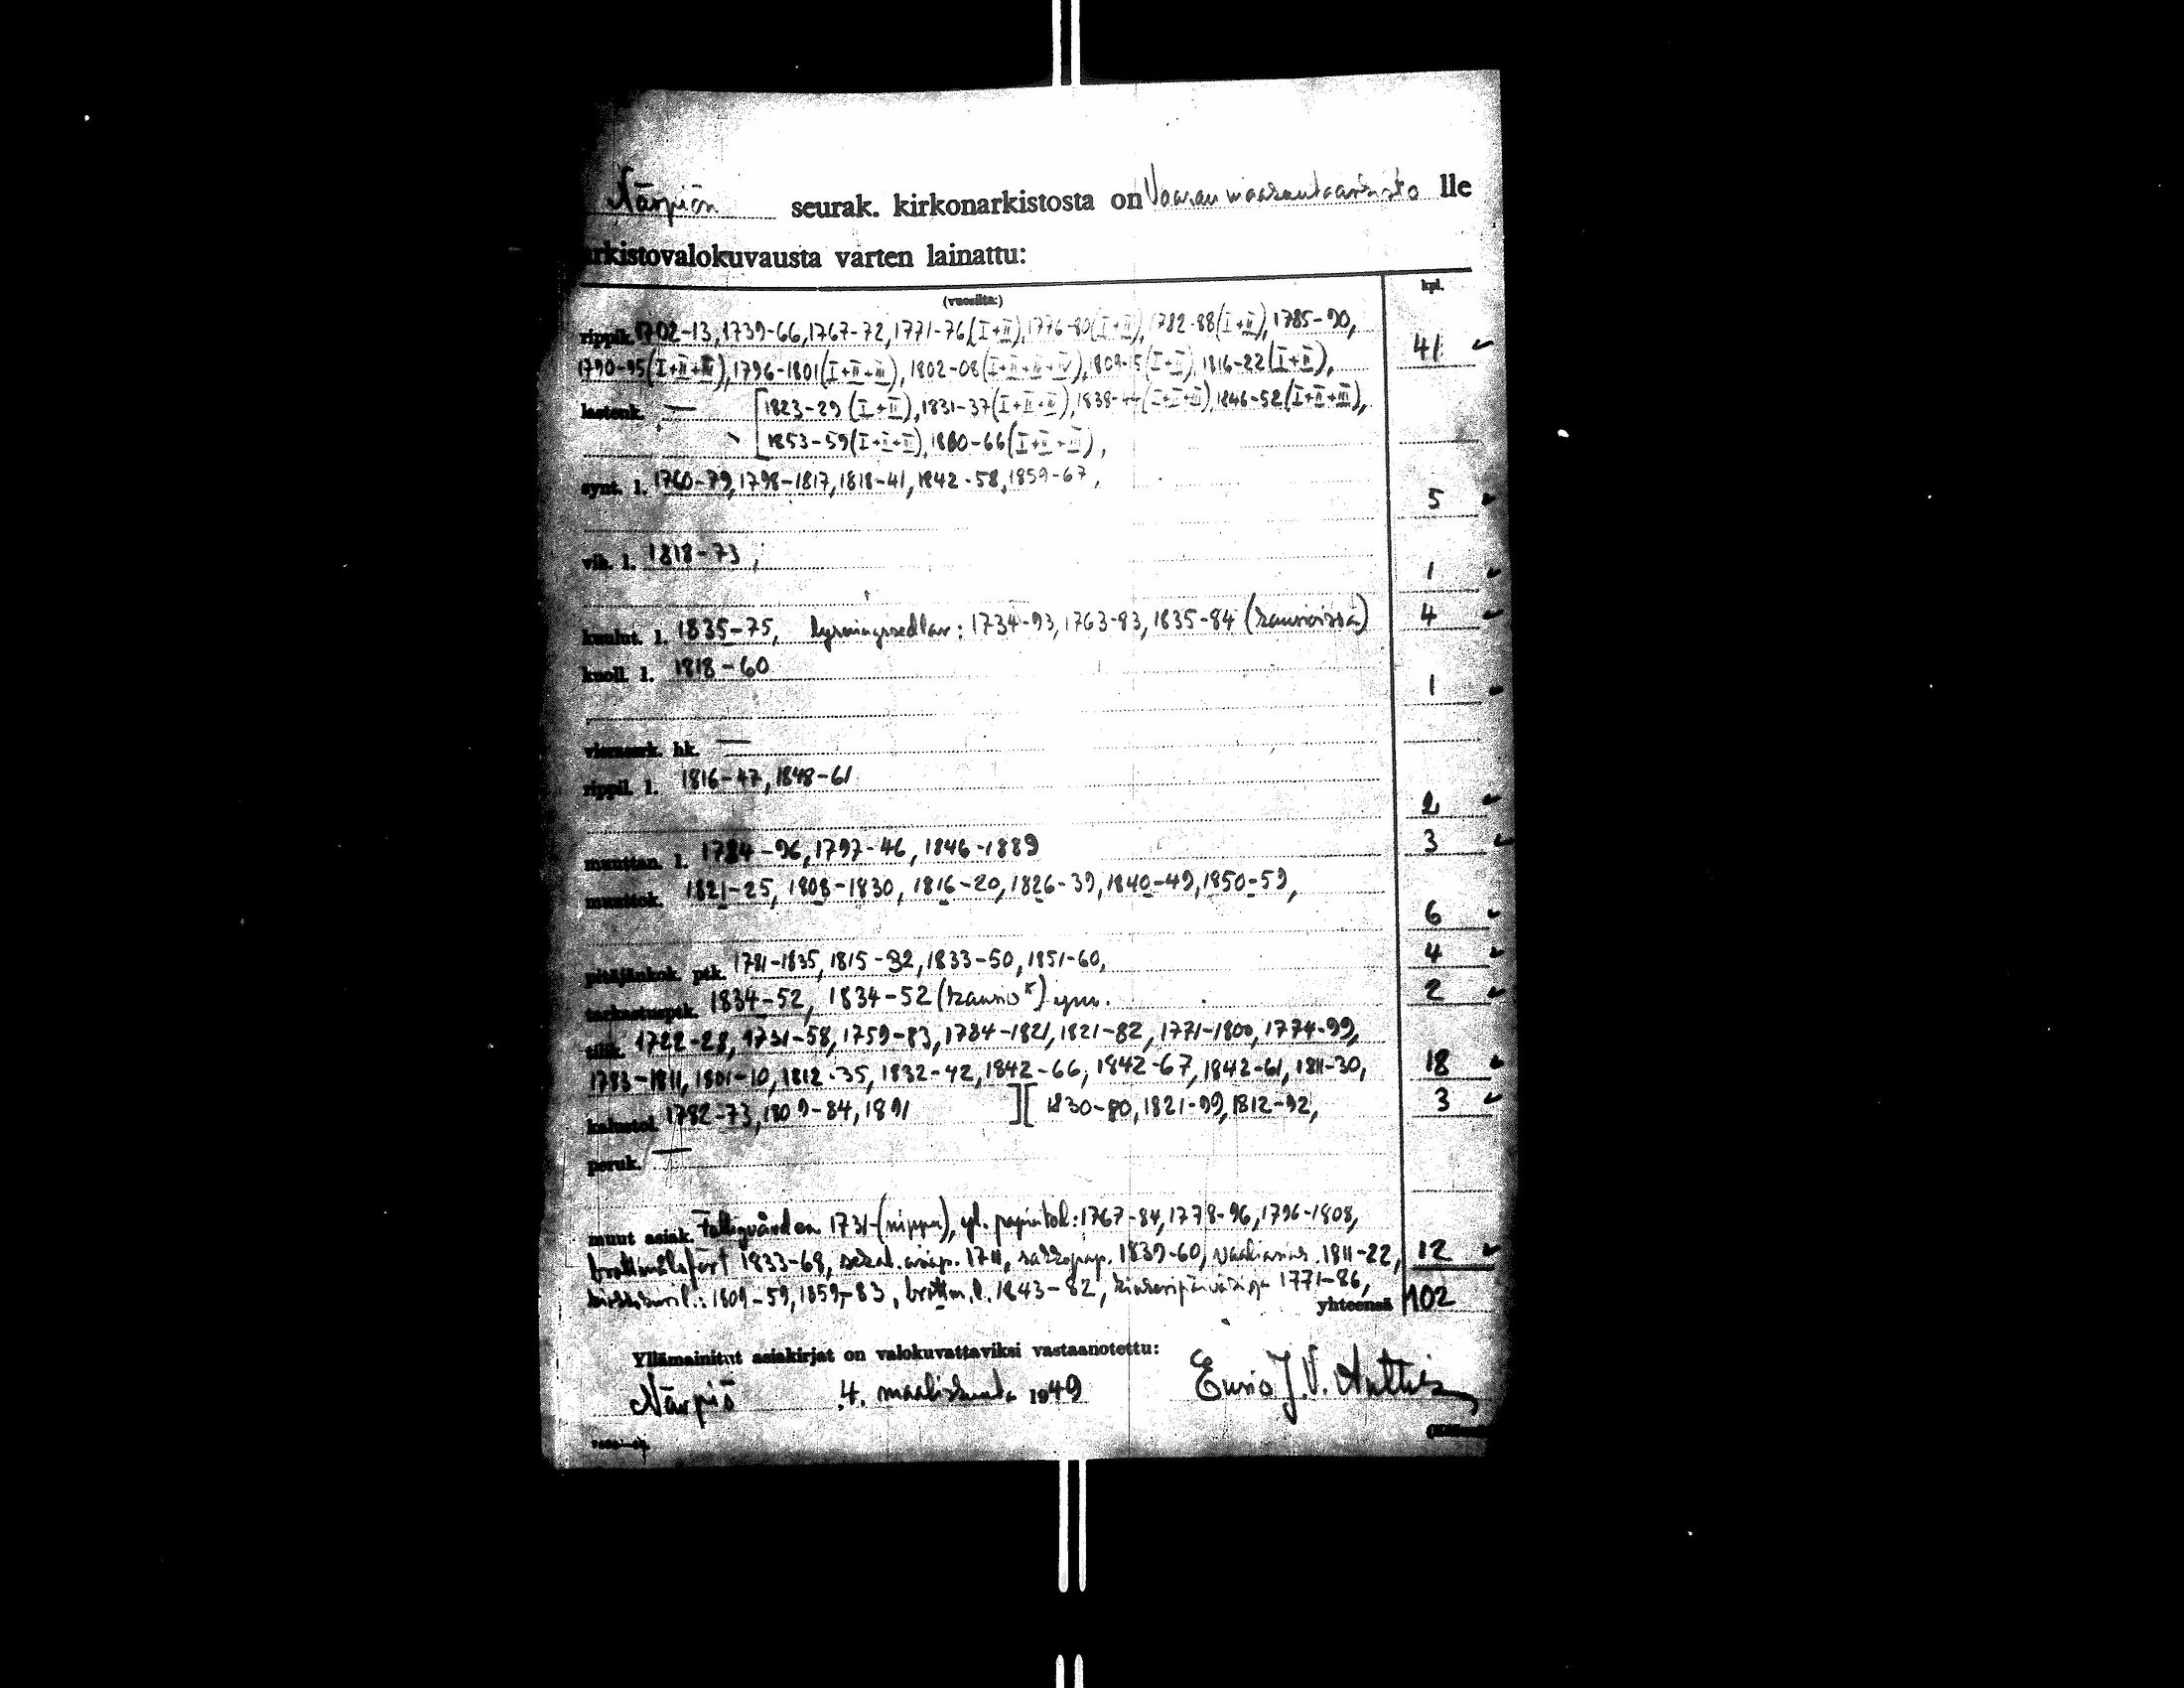 Närpiön seurak. kirkonarkistosta on Vaasan maakuntaarkisto lle
arkistovalokuvausta varten lainattu:
(vuosilta:) kpl.
rippik. 1702-13, 1739-66, 1767-72, 1771-76 (I+II), 1776-80 (I+II), 1782-88 (I+II), 1785-90,
1790-95 (I+II+III), 1796-1801 (I+II+III), 1802-08 (I+II+III+IV), 1809-15 (I+II), 1816-22 (I+II), 41
lastenk. — [1823-29 (I+II), 1831-37 (I+II+III), 1838-44 (I+II+III), 1846-52 (I+II+III),
1853-59 (I+II+III), 1860-66 (I+II+III),
synt. l. 1760-79, 1798-1817, 1818-41, 1842-58, 1859-67, 5
vih. l. 1818-73, 1
kuulut. l. 1835-75, lysningssedlar: 1734-93, 1763-83, 1835-84 (kansioissa) 4
kuoll. l. 1818-60 1
vieraerk. hk. —
rippil. l. 1816-47, 1848-61 2
muuttan. l. 1784-96, 1797-46, 1846-1889 3
muuttok. 1821-25, 1808-1830, 1816-20, 1826-39, 1840-49, 1850-59, 6
pitäjänkok. ptk. 1781-1835, 1815-32, 1833-50, 1851-60, 4
tarkastusptk. 1834-52, 1834-52 (kansio) ym. 2
tilik. 1722-28, 1731-58, 1759-83, 1784-1821, 1821-82, 1771-1800, 1774-99,
1783-1811, 1801-10, 1812-35, 1832-42, 1842-66, 1842-67, 1842-61, 1811-30, 18
kalustol. 1782-73, 1809-84, 1891 ][ 1830-80, 1821-99, 1812-92, 3
peruk. —
muut asiak. Fattigvården 1731- (nippu), yl. 1767-84, 1778-96, 1796-1808,
1833-68, sekal. asiap. 1711, 1839-60, 1811-22, 12
1809-59, 1859-83, brottm. l. 1843-82, 1771-86,
yhteensä 102
Yllämainitut asiakirjat on valokuvattaviksi vastaanotettu:
Närpiö 4. maaliskuuta 1949 J. V.